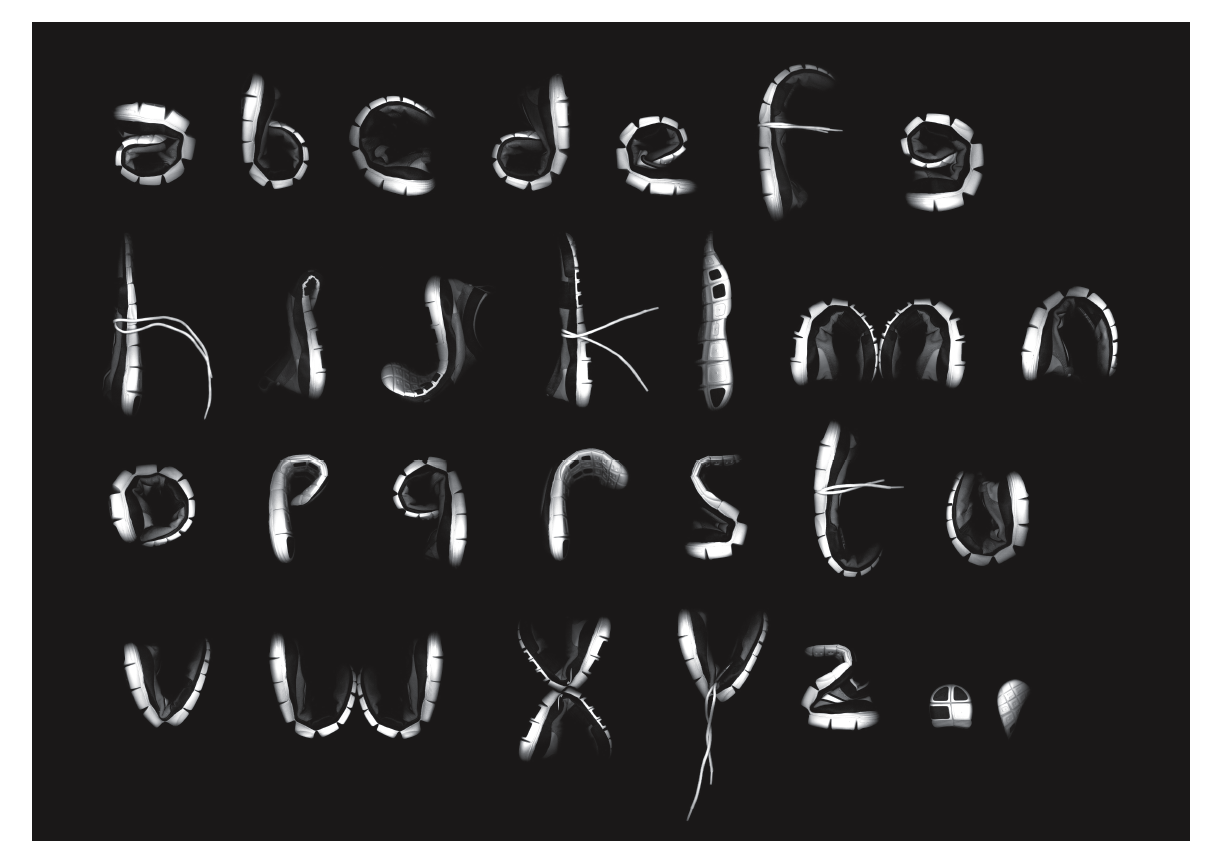 a b c d e f g
h i j k l m n
o p q r s t u
v w x y z . ,